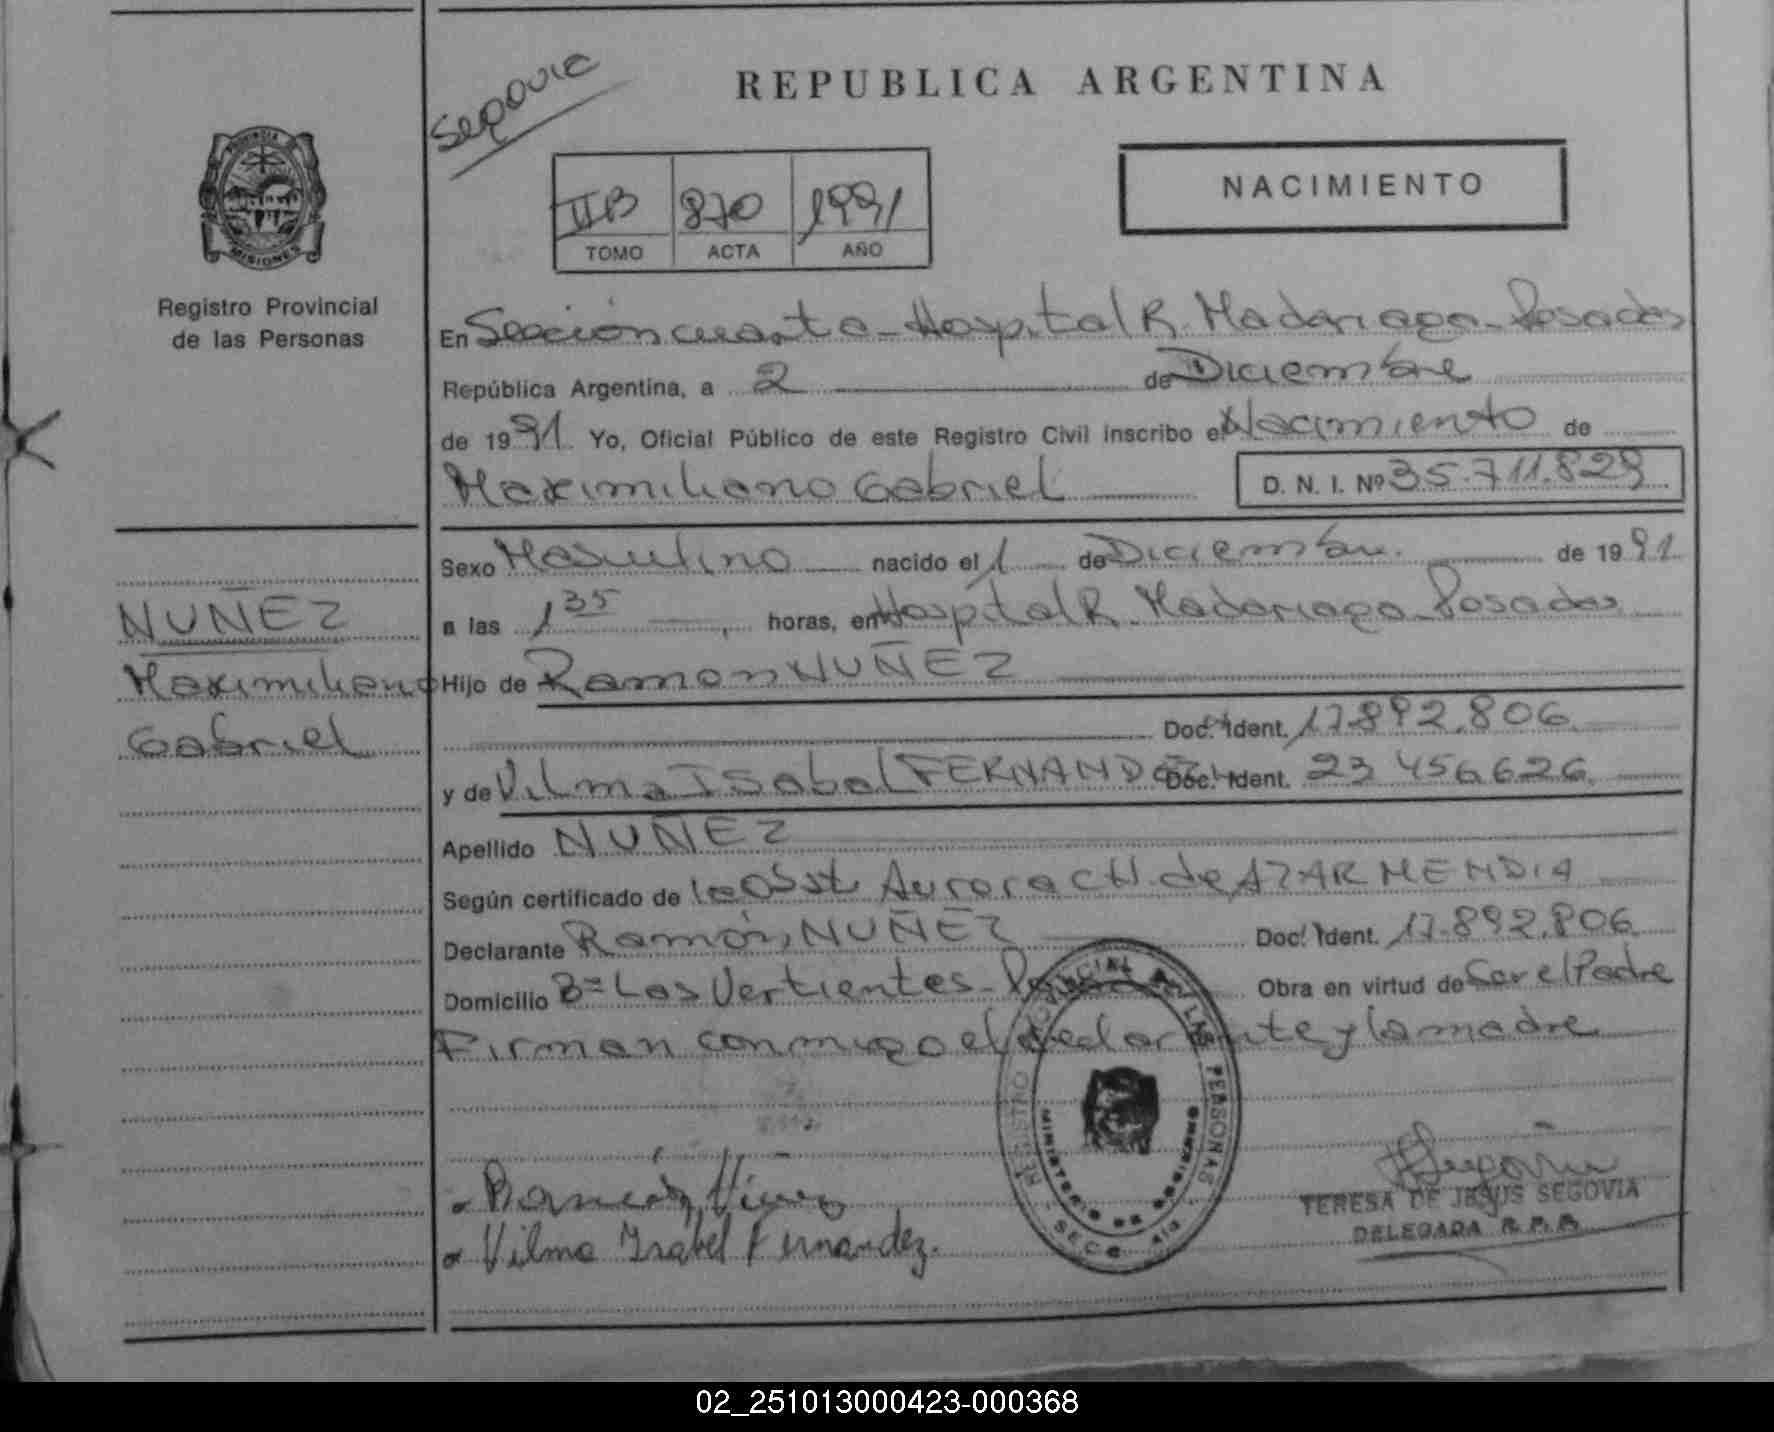 Segovia
REPUBLICA ARGENTINA
PROVINCIA
MISIONES
IIB 870 1991
TOMO ACTA AÑO
NACIMIENTO
Registro Provincial
de las Personas
En Sección cuarta - Hospital R. Madariaga - Posadas
República Argentina, a 2 de Diciembre
de 1991 Yo, Oficial Público de este Registro Civil inscribo el Nacimiento de
Maximiliano Gabriel D. N. I. Nº 35.711.829
Sexo Masculino nacido el 1 de Diciembre de 1991
a las 1 35 horas, en Hospital R. Madariaga - Posadas
NUÑEZ
Maximiliano
Gabriel
Hijo de Ramon NUÑEZ
Doc. Ident. 17.892.806
y de Vilma Isabel FERNANDEZ Doc. Ident. 23 456626
Apellido NUÑEZ
Según certificado de la Obst. Aurora CH. de AZARMENDIA
Declarante Ramón NUÑEZ Doc. Ident. 17.892.806
Domicilio Bº Las Vertientes - Obra en virtud de Ser el Padre
Firman conmigo el declarante y la madre
REGISTRO PROVINCIAL DE LAS PERSONAS
MINISTERIO DE GOBIERNO
Vilma Isabel Fernandez.
TERESA DE JESUS SEGOVIA
DELEGADA R. P. P.
02_251013000423-000368